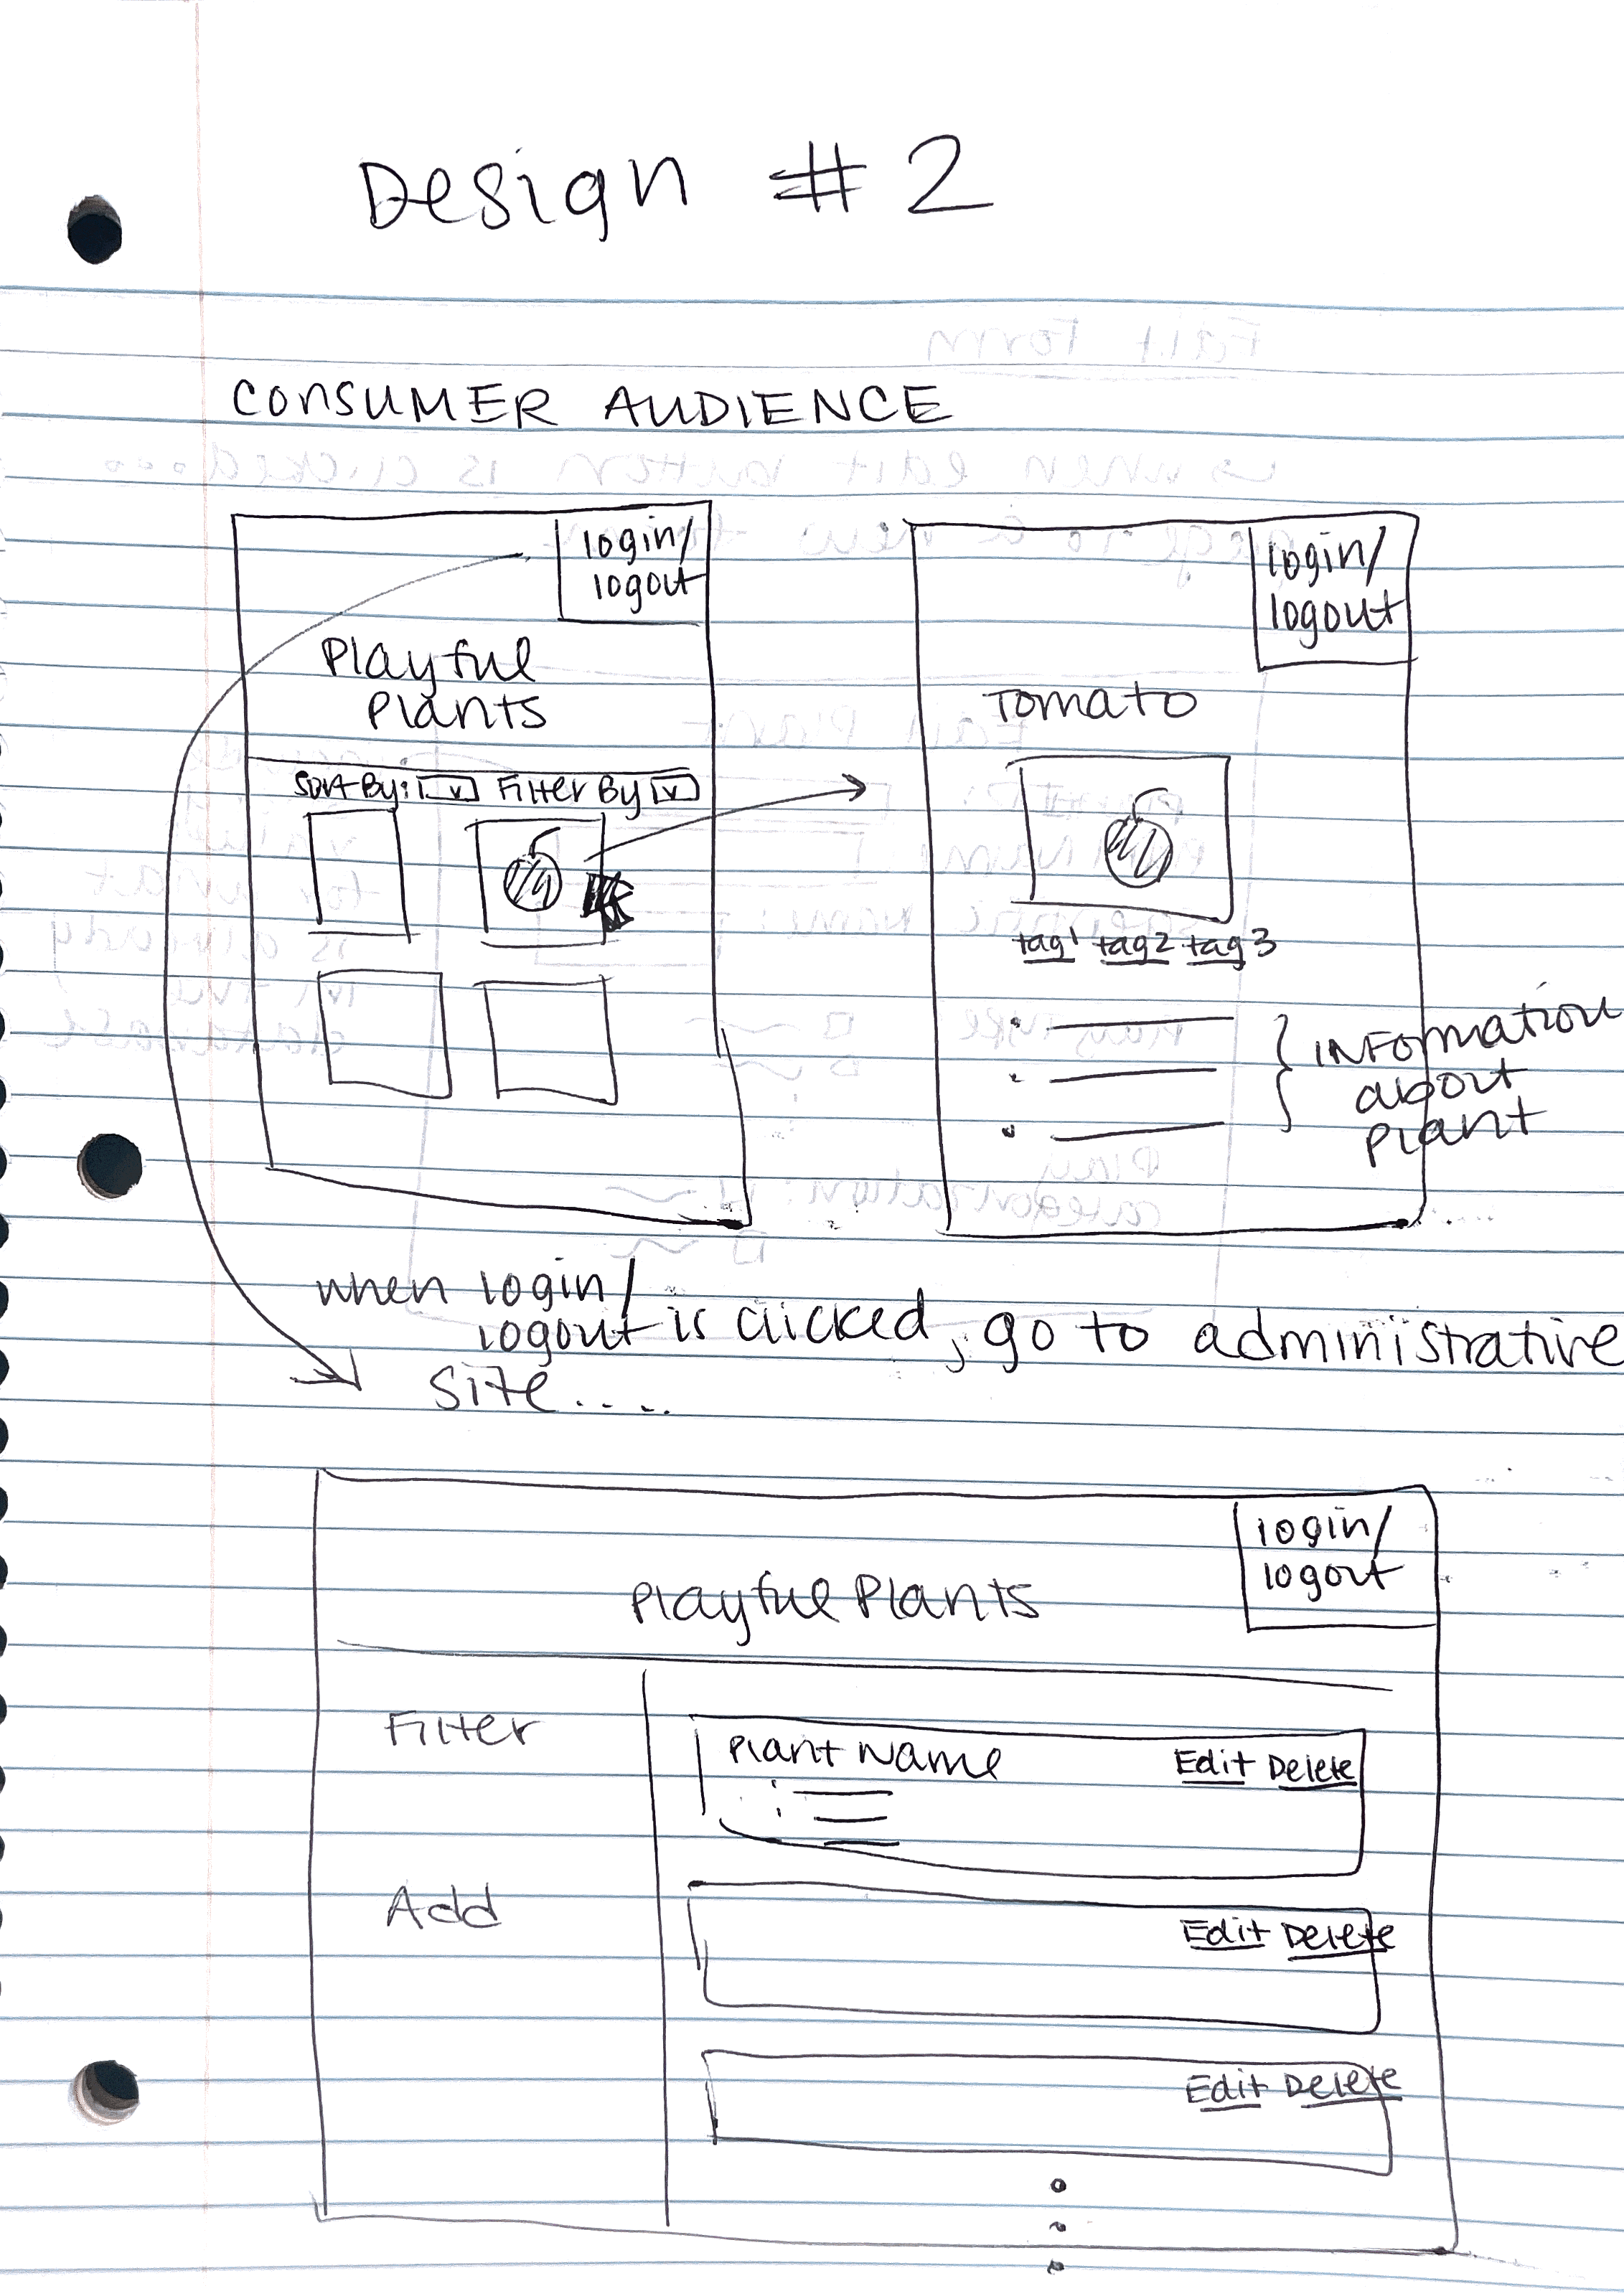 Design #2
CONSUMER AUDIENCE
login/
logout
Playful
Plants
Sort By:
Filter By
login/
logout
Tomato
tag1 tag2 tag3
INFOrmation
about
plant
when login/
logout is clicked, go to administrative
site.....
login/
logout
Playful Plants
Filter
Add
Plant Name
Edit Delete
Edit Delete
Edit Delete